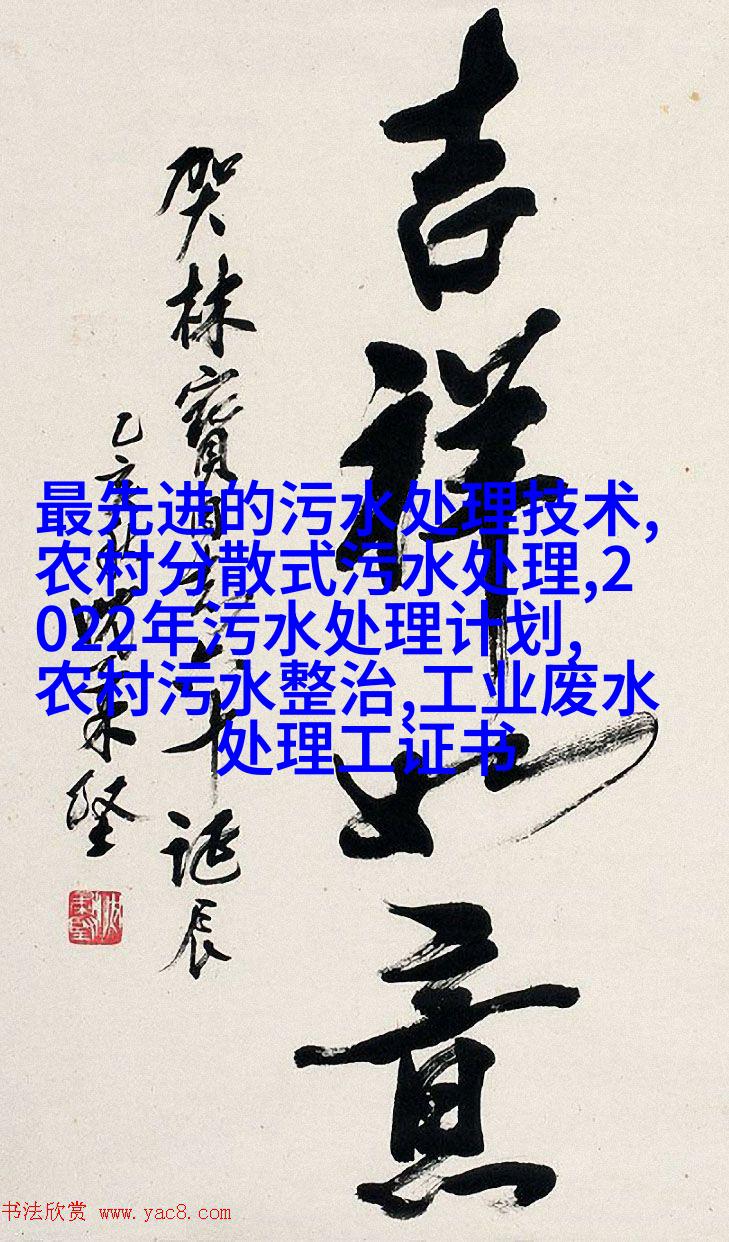 吉祥如意
贺林宝
诞辰
最先进的污水处理技术,
农村分散式污水处理,2
022年污水处理计划,
农村污水整治,工业废水
处理工证书
书法欣赏 www.yac8.com